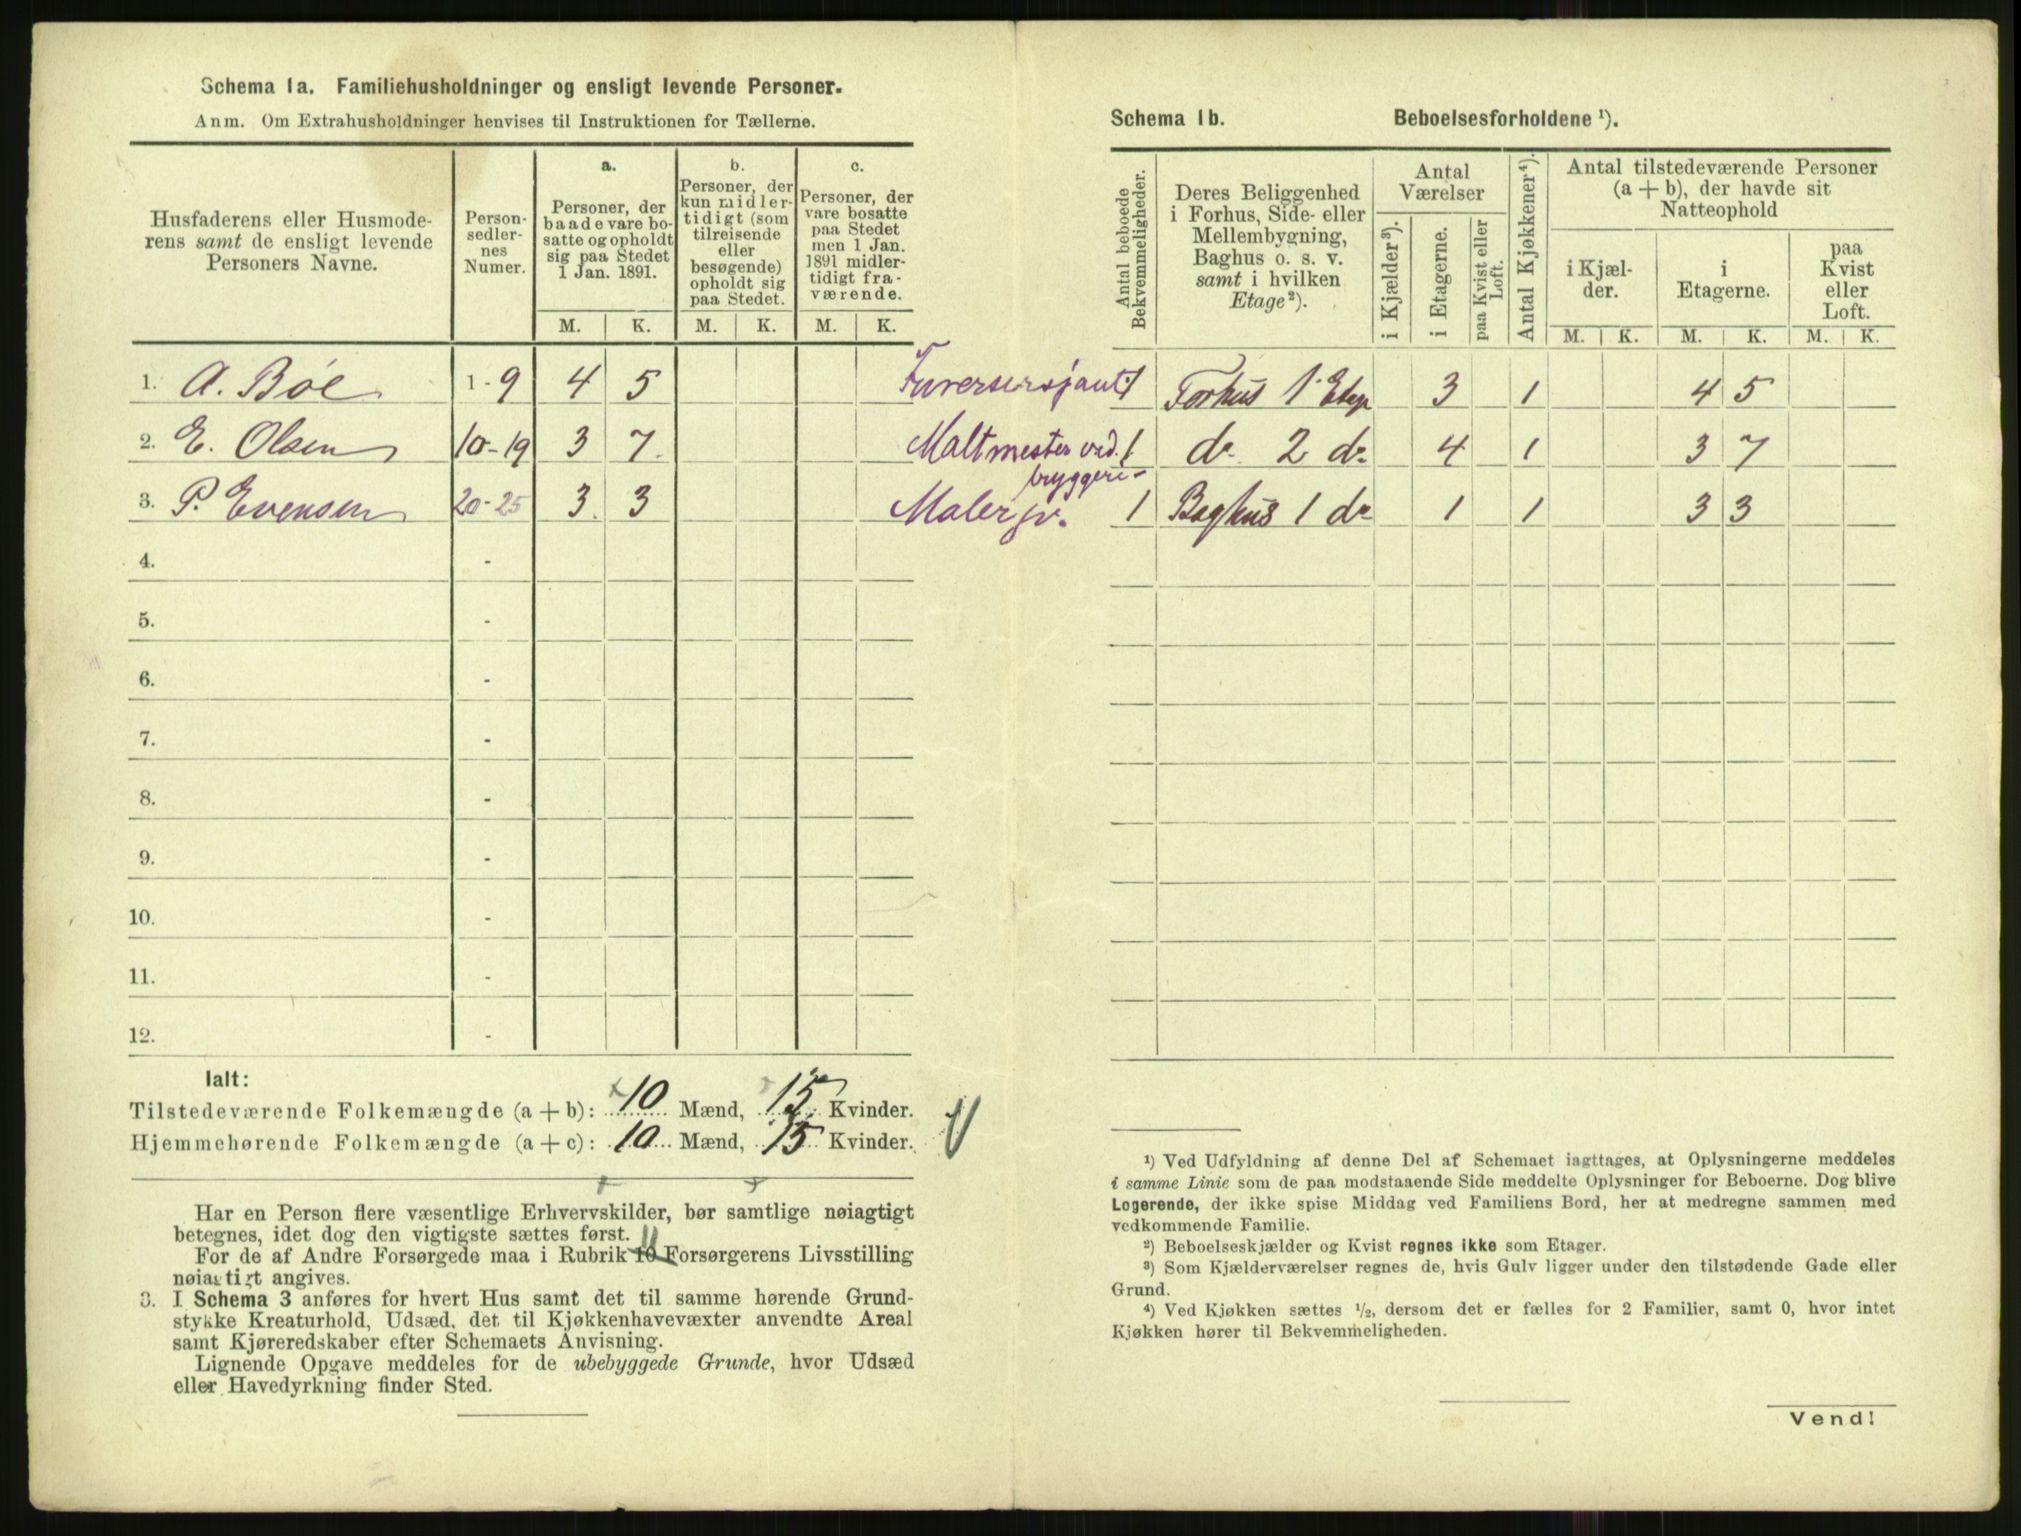 Schema 1a. Familiehusholdninger og ensligt levende Personer.
Anm. Om Extrahusholdninger henvises til Instruktionen for Tællerne.
Husfaderens eller Husmode-
rens samt de ensligt levende
Personers Navne.
Person-
sedler-
nes
Numer.
a.
Personer, der
baade vare bo-
satte og opholdt
sig paa Stedet
1 Jan. 1891.
b.
Personer, der
kun midler-
tidigt (som
tilreisende
eller
besøgende)
opholdt sig
paa Stedet.
c.
Personer, der
vare bosatte
paa Stedet
men 1 Jan.
1891 midler-
tidigt fra-
værende.
M. K. M. K. M. K.
1. A. Böe 1-9 4 5
2. E. Olsen 10-19 3 7 Maltmester ved
bryggeri
3. P. Evensen 20-25 3 3 Maler
4. -
5. -
6. -
7. -
8. -
9. -
10. -
11. -
12. -
Ialt:
Tilstedeværende Folkemængde (a + b): 10 Mænd, 15 Kvinder.
Hjemmehørende Folkemængde (a + c): 10 Mænd, 15 Kvinder.
Har en Person flere væsentlige Erhvervskilder, bør samtlige nøiagtigt
betegnes, idet dog den vigtigste sættes først.
For de af Andre Forsørgede maa i Rubrik 10 11 Forsørgerens Livsstilling
nøiagtigt angives.
3. I Schema 3 anføres for hvert Hus samt det til samme hørende Grund-
stykke Kreaturhold, Udsæd, det til Kjøkkenhavevæxter anvendte Areal
samt Kjøreredskaber efter Schemaets Anvisning.
Lignende Opgave meddeles for de ubebyggede Grunde, hvor Udsæd
eller Havedyrkning finder Sted.
Schema 1b. Beboelsesforholdene ¹).
Antal beboede
Bekvemmeligheder.
Deres Beliggenhed
i Forhus, Side- eller
Mellembygning,
Baghus o. s. v.
samt i hvilken
Etage²).
Antal
Værelser
i Kjælder³).
i Etagerne.
paa Kvist eller
Loft.
Antal Kjøkkener⁴).
Antal tilstedeværende Personer
(a + b), der havde sit
Natteophold
i Kjæl-
der.
i
Etagerne.
paa
Kvist
eller
Loft.
M. K. M. K. M. K.
1 Forhus 1 Etage 3 1 4 5
1 do 2 do 4 1 3 7
1 Baghus 1 do 1 1 3 3
¹) Ved Udfyldning af denne Del af Schemaet iagttages, at Oplysningerne meddeles
i samme Linie som de paa modstaaende Side meddelte Oplysninger for Beboerne. Dog blive
Logerende, der ikke spise Middag ved Familiens Bord, her at medregne sammen med
vedkommende Familie.
²) Beboelseskjælder og Kvist regnes ikke som Etager.
³) Som Kjælderværelser regnes de, hvis Gulv ligger under den tilstødende Gade eller
Grund.
⁴) Ved Kjøkken sættes ½, dersom det er fælles for 2 Familier, samt 0, hvor intet
Kjøkken hører til Bekvemmeligheden.
Vend!